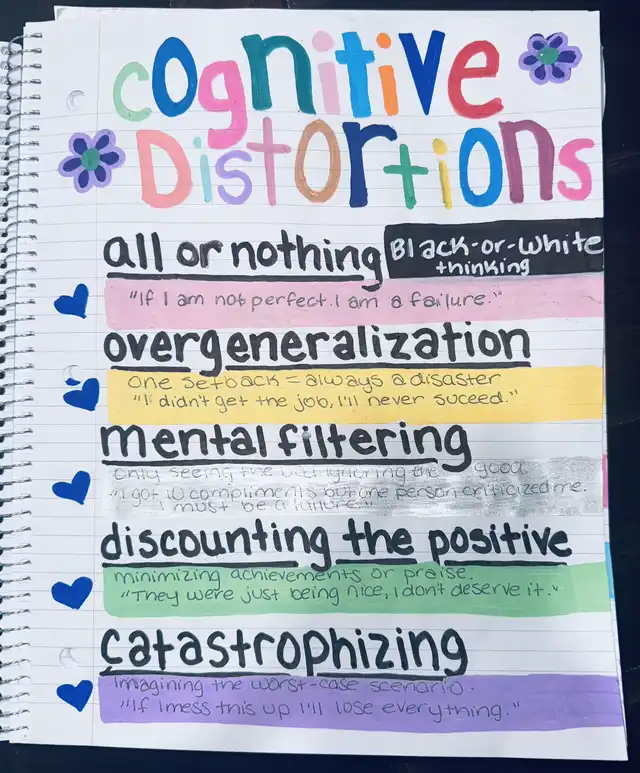 cognitive
Distortions
all or nothing
Black-or-white
thinking
"If I am not perfect. I am a failure."
overgeneralization
one setback = always a disaster
"I didn't get the job, I'll never suceed."
mental filtering
only seeing the bad ignoring the good
"I got 10 compliments but one person criticized me.
I must be a failure."
discounting the positive
minimizing achievements or praise.
"They were just being nice, I don't deserve it."
catastrophizing
Imagining the worst-case scenario.
"If I mess this up I'll lose everything."